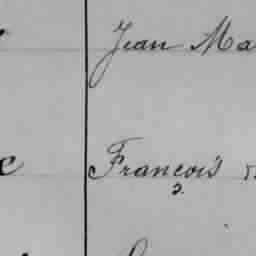 Jean Ma
François